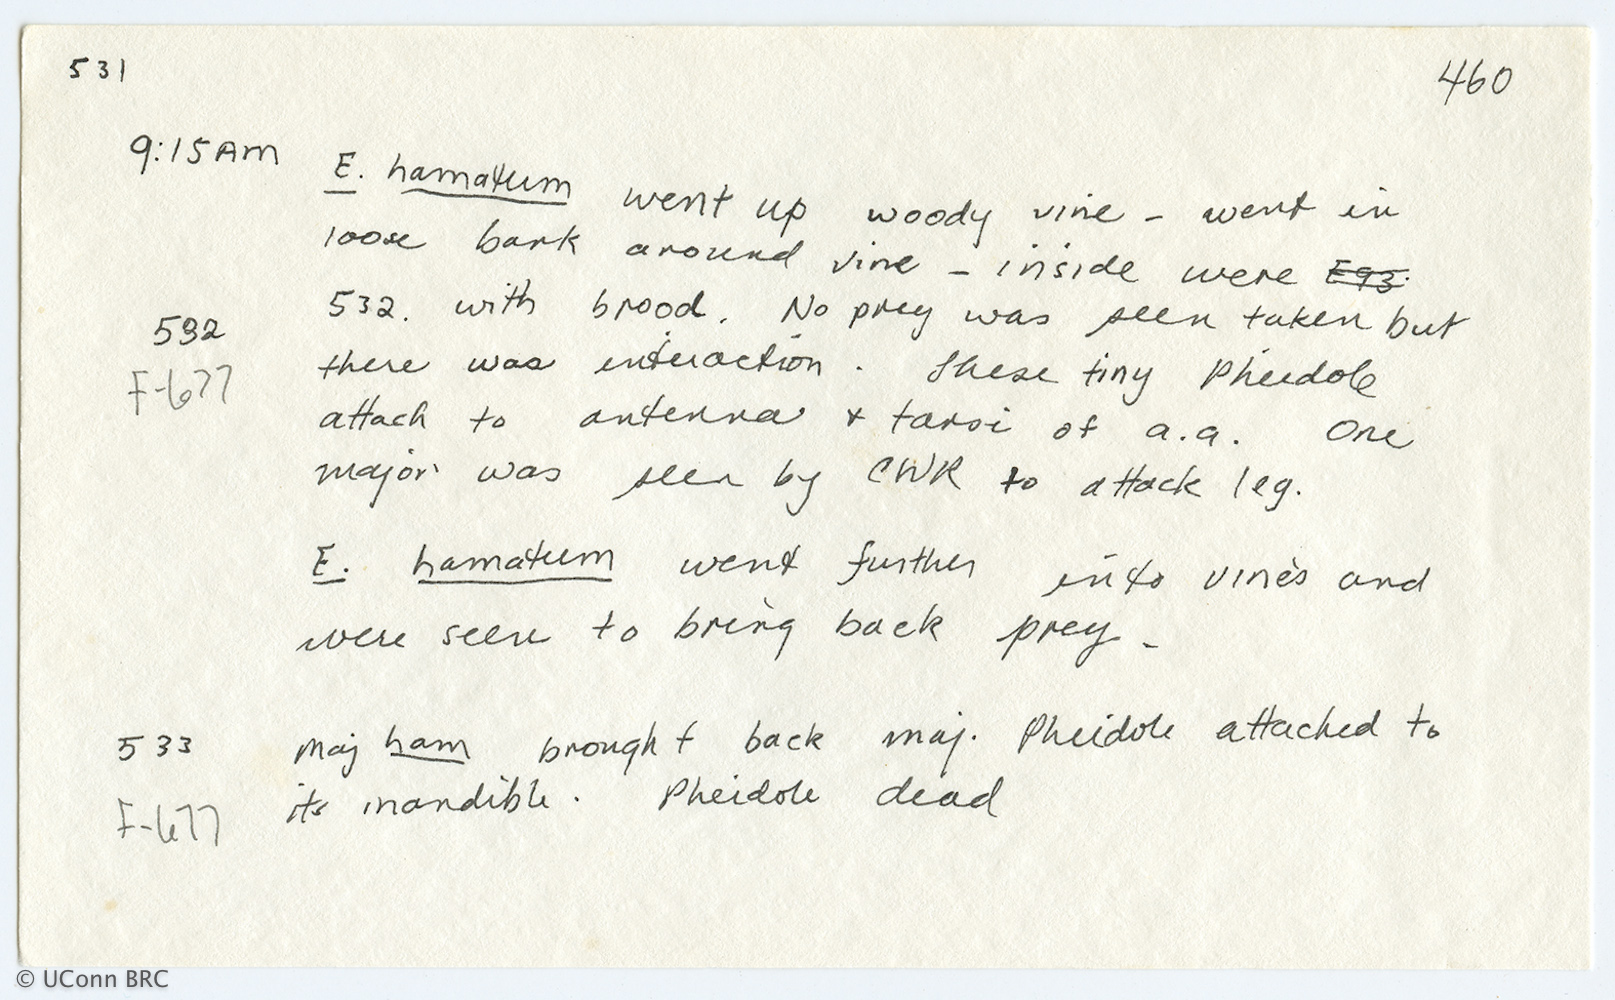 531
460
9:15 AM E. hamatum went up woody vine - went in
loose bark around vine - inside were E93.
532. with brood. No prey was seen taken but
532 there was interaction. These tiny Pheidole
F-677 attach to antenna + tarsi of a.a. One
major was seen by CWR to attack leg.
E. hamatum went further into vines and
were seen to bring back prey -
533 Maj ham brought back maj. Pheidole attached to
F-677 its mandible. Pheidole dead
© UConn BRC